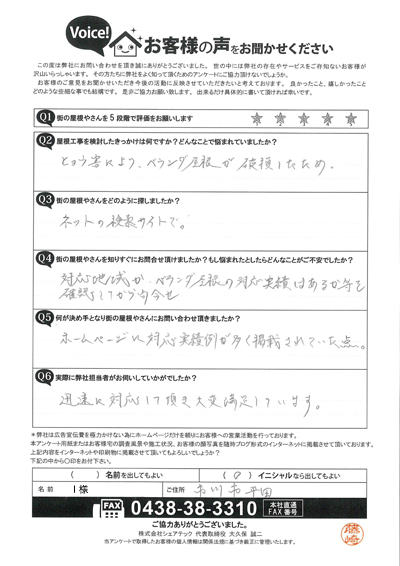 Voice!
お客様の声をお聞かせください
この度は弊社にお問い合わせを頂き誠にありがとうございました。世の中には弊社の存在やサービスをご存知ないお客様が
沢山いらっしゃいます。その方たちに弊社をよく知って頂くためのアンケートにご協力頂けないでしょうか。
お客様のご意見をお聞かせいただき今後の活動に反映させていただきたいと考えております。良かったこと、嬉しかったこと
どのような些細な事でも結構です。是非ご協力お願い致します。出来るだけ具体的に書いて頂ければ幸いです。
Q1 街の屋根やさんを5段階で評価をお願いします
Q2 屋根工事を検討したきっかけは何ですか?どんなことで悩まれていましたか?
ひょう害により、ベランダ屋根が破損したため。
Q3 街の屋根やさんをどのように探しましたか?
ネットの検索サイトで。
Q4 街の屋根やさんを知りすぐにお問合せ頂けましたか?もし悩まれたとしたらどんなことがご不安でしたか?
対応地域か、ベランダ屋根の対応実績はあるか等を
確認してから問合せ
Q5 何が決め手となり街の屋根やさんにお問い合わせ頂きましたか?
ホームページに対応実績例が多く掲載されていた点。
Q6 実際に弊社担当者がお伺いしていかがでしたか?
迅速に対応して頂き大変満足しています。
*弊社は広告宣伝費を極力かけない為にホームページだけを頼りにお客様への営業活動を行っております。
本アンケート用紙またはお客様宅の調査風景や施工状況、お客様の顔写真を随時ブログ形式のインターネットに掲載させて頂いております。
上記内容をインターネットや印刷物に掲載させて頂いてもよろしいでしょうか?
下記の中から〇印をお付下さい。
( )名前を出してもよい
(○)イニシャルなら出してもよい
名前
I様
ご住所
市川市平田
FAX
0438-38-3310
本社直通
FAX番号
ご協力ありがとうございました。
株式会社シェアテック 代表取締役 大久保 誠二
当アンケートで取得したお客様の個人情報は関係法規に基づき厳正に管理いたします。